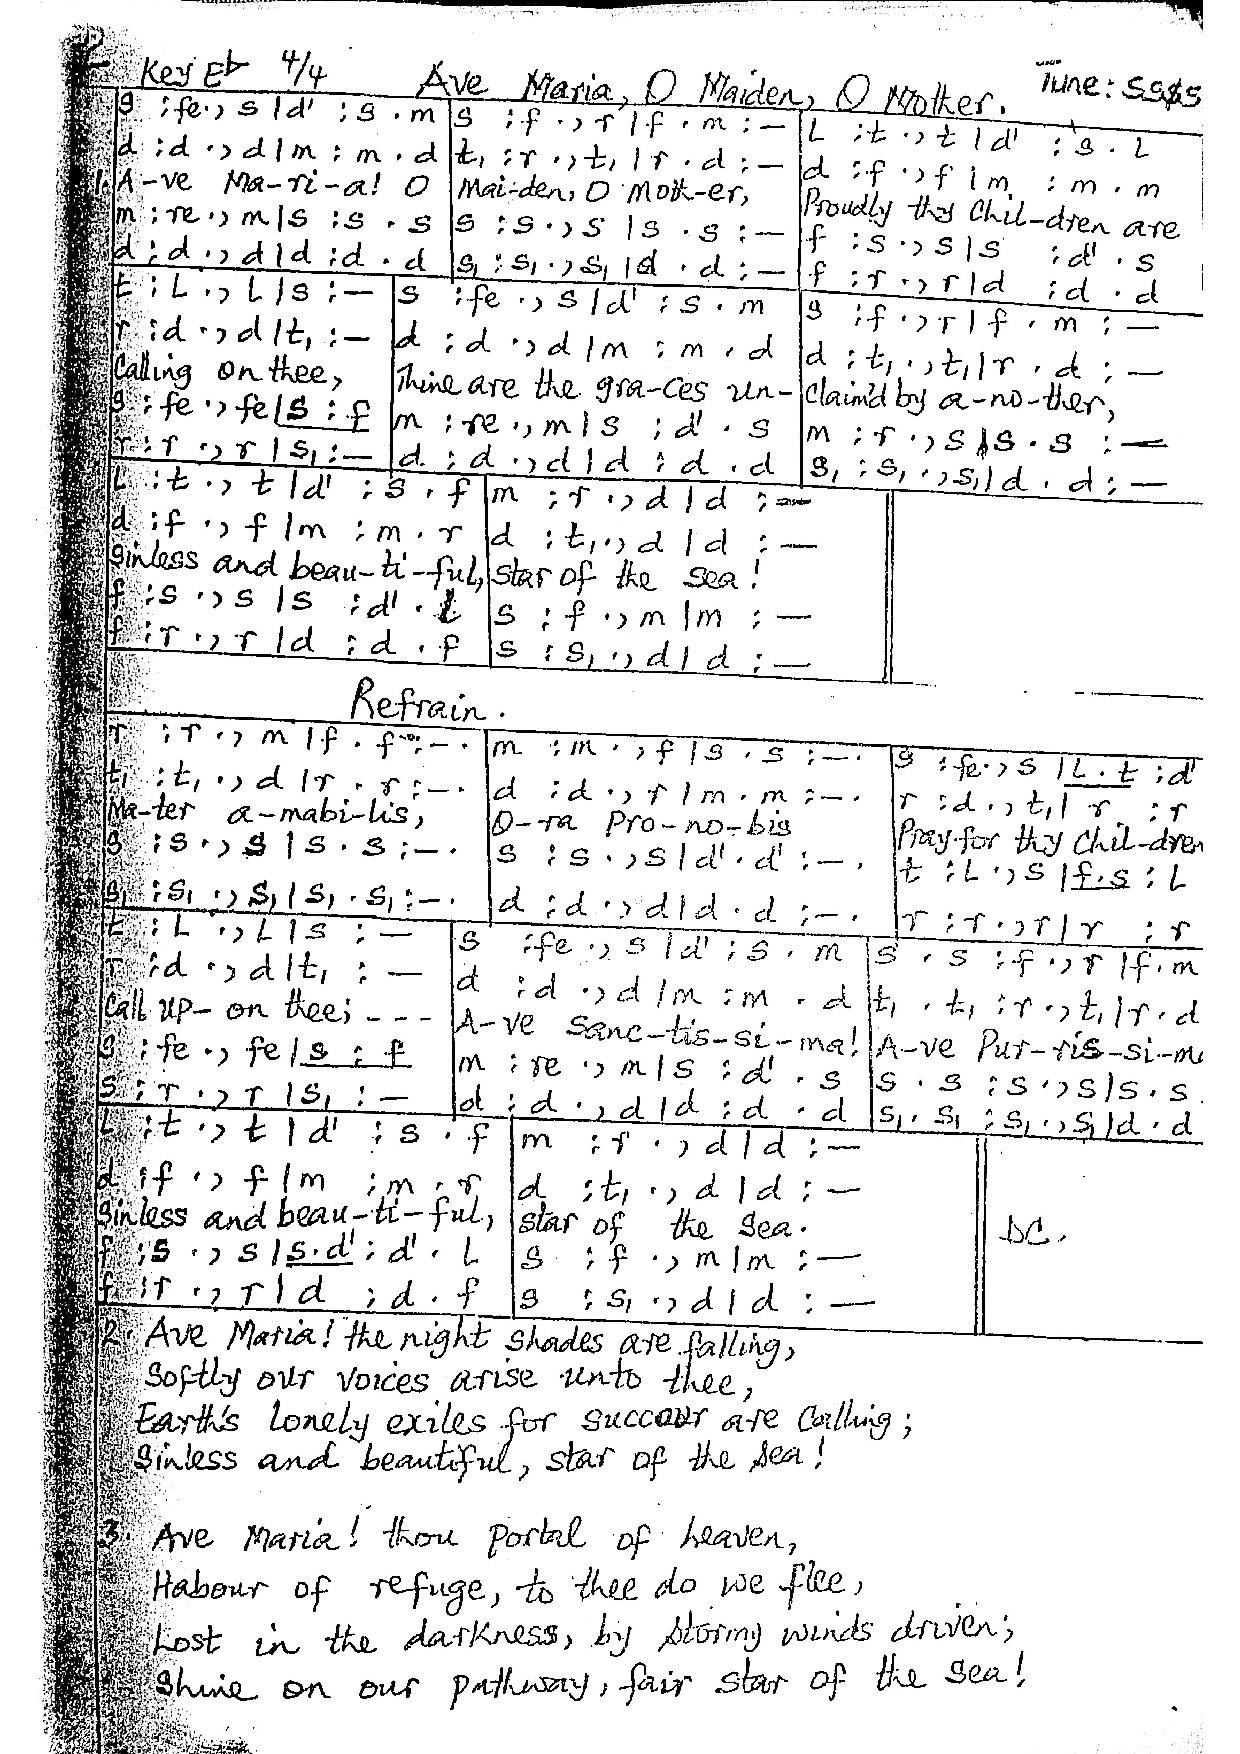 Key E♭ 4/4 Ave Maria, O Maiden, O Mother. Tune: SS&S
s :fe ., s | d' : s . m | s : f ., r | f . m : — | L : t ., t | d' : s . L
d : d ., d | m : m . d | t₁ : r ., t₁ | r . d : — | d : f ., f | m : m . m
1. A-ve Ma-ri-a! O | Mai-den, O Moth-er, | Proudly thy Chil-dren are
m : re ., m | s : s . s | s : s ., s | s . s : — | f : s ., s | s : d' . s
d : d ., d | d : d . d | s₁ : s₁ ., s₁ | d . d : — | f : r ., r | d : d . d
t : L ., L | s : — | s : fe ., s | d' : s . m | s : f ., r | f . m : —
r : d ., d | t₁ : — | d : d ., d | m : m . d | d : t₁ ., t₁ | r . d : —
Calling on thee, | Thine are the gra-ces un- | claim'd by a-no-ther,
s : fe ., fe | s : f | m : re ., m | s : d' . s | m : r ., s | s . s : —
r : r ., r | s₁ : — | d : d ., d | d : d . d | s₁ : s₁ ., s₁ | d . d : —
L : t ., t | d' : s . f | m : r ., d | d : —
d : f ., f | m : m . r | d : t₁ ., d | d : —
Sinless and beau-ti-ful, | star of the sea!
f : s ., s | s : d' . L | s : f ., m | m : —
f : r ., r | d : d . f | s : s₁ ., d | d : —
Refrain.
r : r ., m | f . f : — . | m : m ., f | s . s : — . | s : fe ., s | L . t : d'
t₁ : t₁ ., d | r . r : — . | d : d ., r | m . m : — . | r : d ., t₁ | r : r
Ma-ter a-mabi-lis, | O-ra Pro-no-bis | Pray for thy Chil-dren
s : s ., s | s . s : — . | s : s ., s | d' . d' : — . | t : L ., s | f . s : L
s₁ : s₁ ., s₁ | s₁ . s₁ : — . | d : d ., d | d . d : — . | r : r ., r | r : r
t : L ., L | s : — | s : fe ., s | d' : s . m | s . s : f ., r | f . m
r : d ., d | t₁ : — | d : d ., d | m : m . d | t₁ . t₁ : r ., t₁ | r . d
Call up- on thee; - - - | A-ve Sanc-tis-si-ma! | A-ve Pur-ris-si-m
s : fe ., fe | s : f | m : re ., m | s : d' . s | s . s : s ., s | s . s
s : r ., r | s₁ : — | d : d ., d | d : d . d | s₁ . s₁ : s₁ ., s₁ | d . d
L : t ., t | d' : s . f | m : r ., d | d : —
d : f ., f | m : m . r | d : t₁ ., d | d : —
Sinless and beau-ti-ful, | star of the sea. | DC.
f : s ., s | s . d' : d' . L | s : f ., m | m : —
f : r ., r | d : d . f | s : s₁ ., d | d : —
2. Ave Maria! the night shades are falling,
Softly our voices arise unto thee,
Earth's lonely exiles for succour are calling;
Sinless and beautiful, star of the sea!
3. Ave Maria! thou portal of heaven,
Habour of refuge, to thee do we flee,
Lost in the darkness, by stormy winds driven;
Shine on our pathway, fair star of the sea!